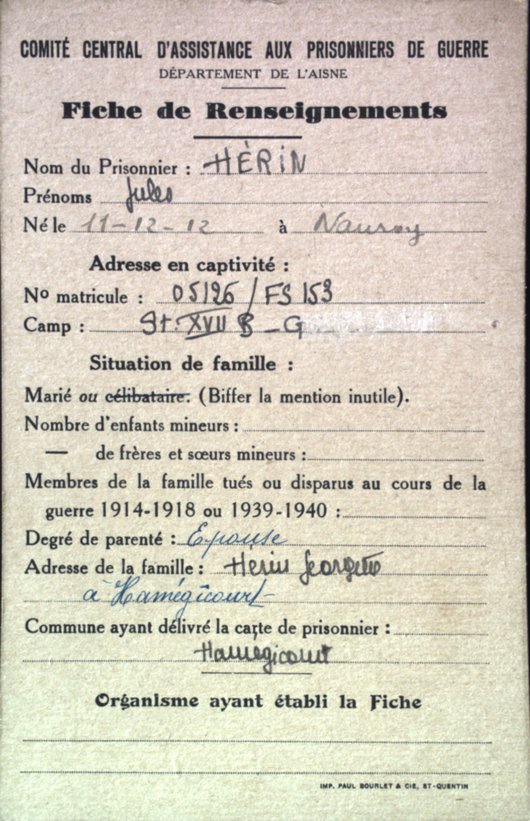 COMITÉ CENTRAL D'ASSISTANCE AUX PRISONNIERS DE GUERRE
DÉPARTEMENT DE L'AISNE
Fiche de Renseignements
Nom du Prisonnier : HÉRIN
Prénoms Jules
Né le 11-12-12 à Nauroy
Adresse en captivité :
No matricule : 05126 / FS 153
Camp : St. XVII B - G
Situation de famille :
Marié ou célibataire. (Biffer la mention inutile).
Nombre d'enfants mineurs :
— de frères et sœurs mineurs :
Membres de la famille tués ou disparus au cours de la
guerre 1914-1918 ou 1939-1940 :
Degré de parenté : Epouse
Adresse de la famille : Herin Georgette
à Hamégicourt
Commune ayant délivré la carte de prisonnier :
Hamegicourt
Organisme ayant établi la Fiche
IMP. PAUL BOURLET & CIE, ST-QUENTIN